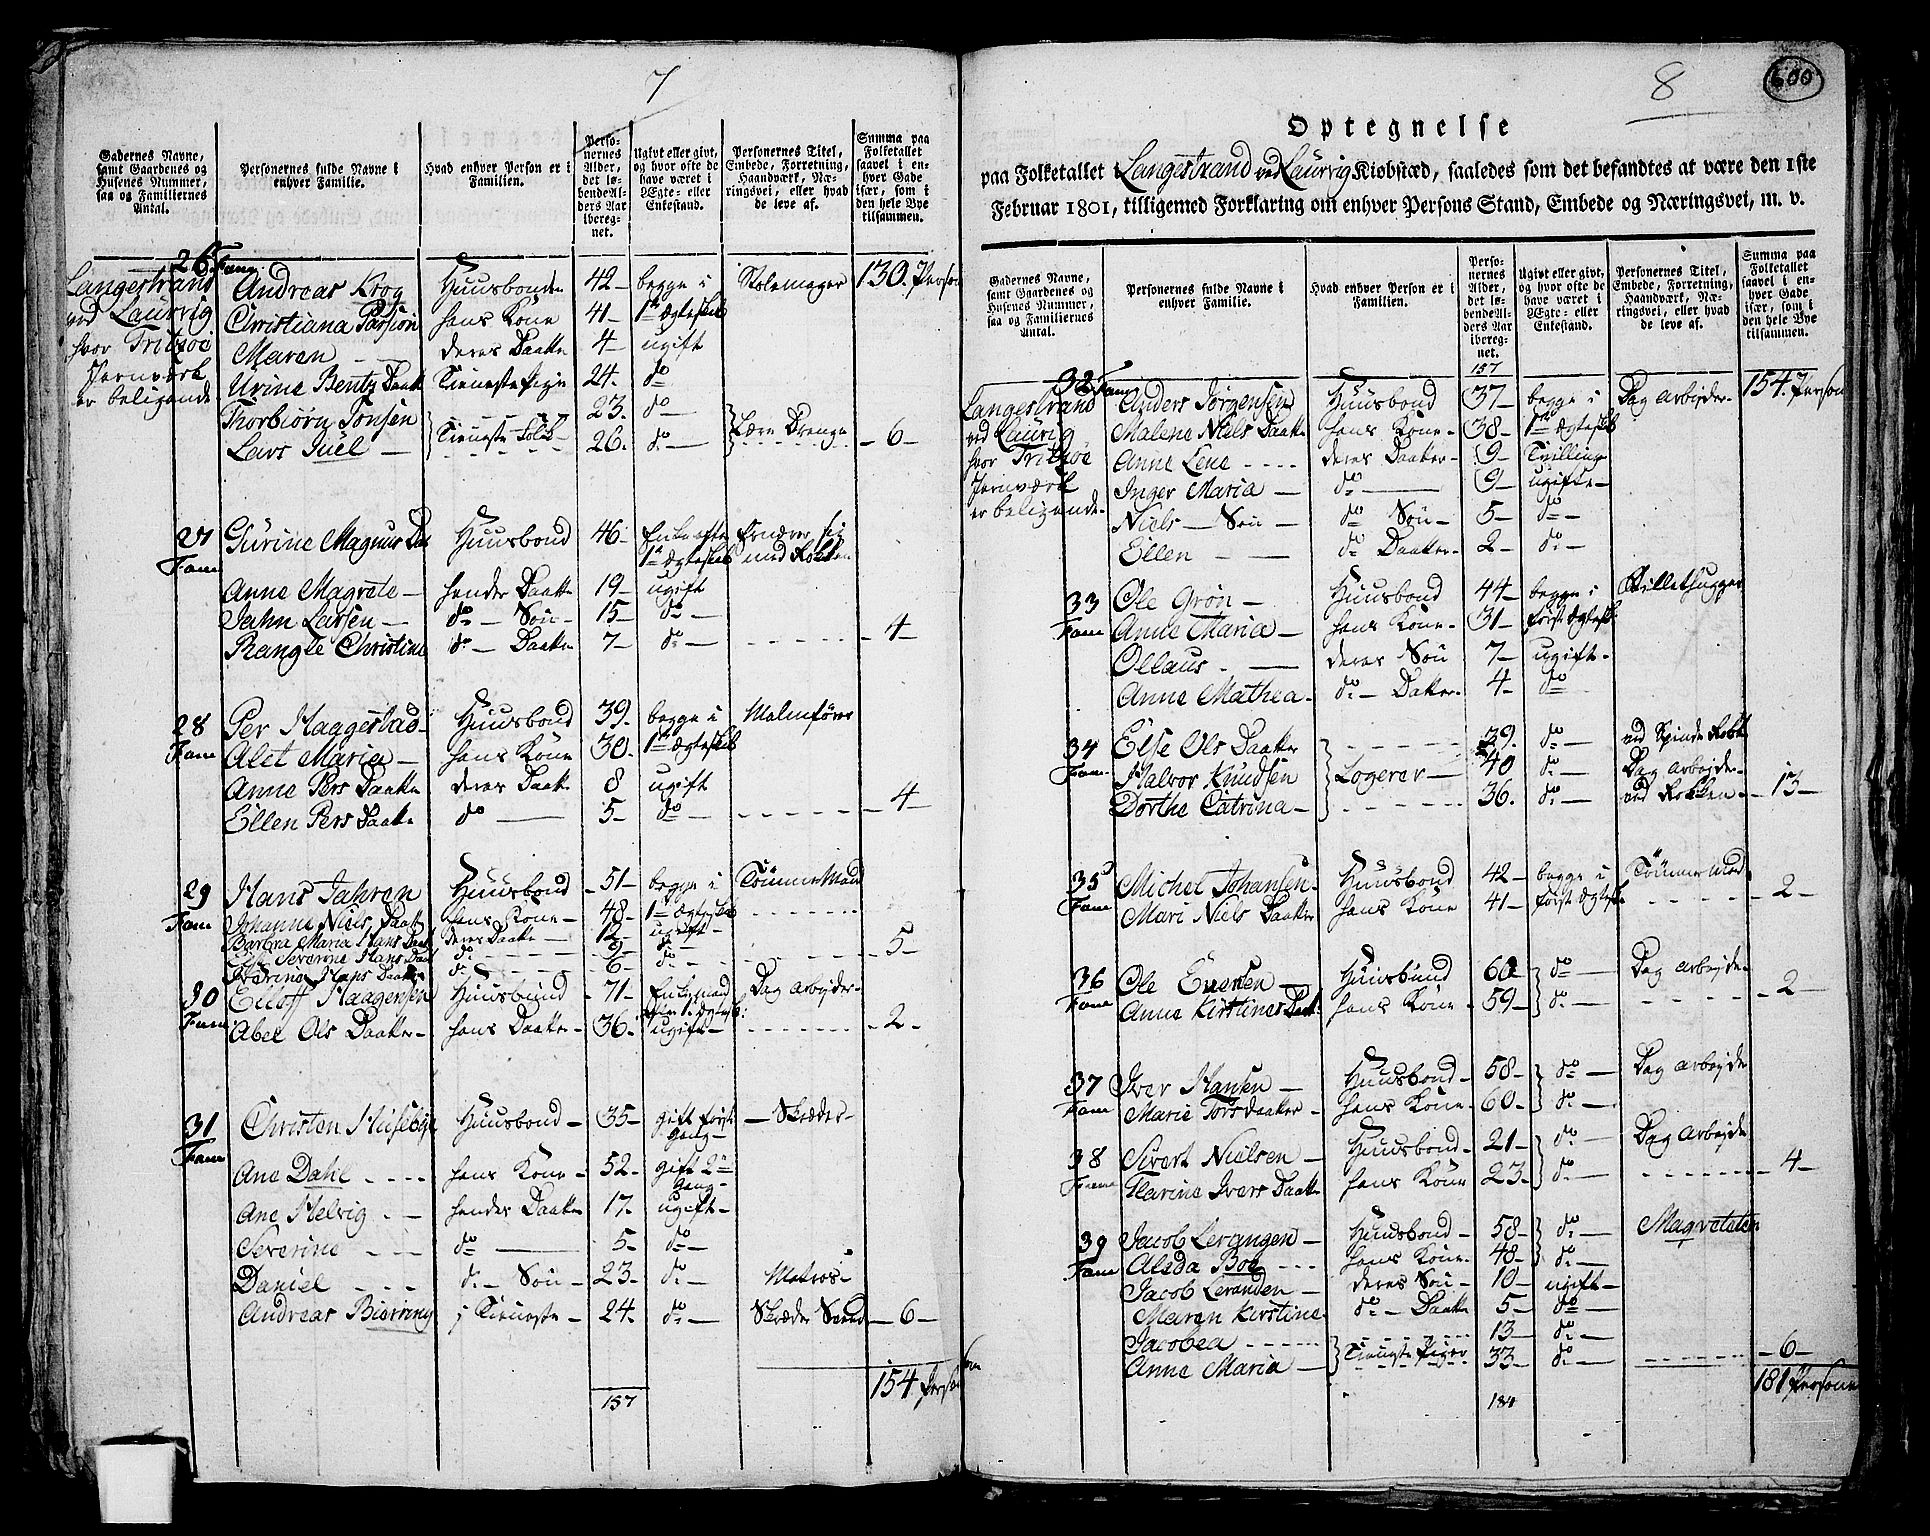 7
Gadernes Navne, samt Gaardenes og Husenes Nummer, saa og Familiernes Antal.
Personernes fulde Navne i enhver Familie.
Hvad enhver Person er i Familien.
Personernes Alder, det løbende Alders Aar iberegnet.
Ugivt eller givt, og hvor ofte de have været i Ægte- eller Enkestand.
Personernes Titel, Embede, Forretning, Haandværk, Næringsvei, eller hvad de leve af.
Summa paa Folketallet saavel i enhver Gade især, som i den hele Bye tilsammen.
Langestrand ved Laurvig hvor Fritzöe Jernværk er beligende
26. Fam.
Andreas Krog Huusbonde 42- begge i Stolemager 130. Person
Christiana hans Kone 41- 1te Ægteskab
Maren - - deres Daatter 4- ugift
Urine Bentz Daatt Tieneste Pige 24. do
Thorbiörn Jonsen 23. do -
Lars Juel - Tieneste Folk 26. do - Lære Drenge - 6 -
27 Fam
Gurine Magnus Daa Huusbond 46- Enke efter 1te Ægteskab Ernærer sig med Rokken
Anne Magrete - hendes Daatte 19- ugift
Jahn Larsen - do - Sön - 15- do -
Rangle Christine do - Daatte 7- do - - - - - 4 -
28 Fam
Per Haagestad - Huusbond 39. begge i Malmförer
Alet Maria - hans Kone 30. 1te Ægteskab
Anne Pers Daatte deres Daatt. 8 ugift
Ellen Pers Daatte do - 5- do - - - - - 4 -
29 Fam
Hans Jahren Huusbond - 51- begge i Tömmer Mand
Johanne Niels Daatt hans Kone - 48- 1te Ægteskab - - - -
Barbra Maria Hans Daat deres Daatte - 12- ugift -
Severine Hans Daat do - - - 9- do - - 5 -
Hans Daatte do - - - 6- do -
30 Fam
Haagensen Huusbund - 71- Enkemand Dag arbeyder -
Abel Ols Daatter - hans Daatte - 36. ugift - - - - - 2 -
31 Fam
Christen Huusebye Huusbond - 35- gift förste gang - - Skræder -
Ane Dahl - - - hans Kone - 52. gift 2en gang -
Ane Helvig - - hendes Daatte 17. ugift -
Severine - - - do - 5- do -
Daniel - - - do - Sön - 23. do - Matros -
Andreas i Tieneste - 24. do - Skræder Svend - 6 -
157
154 Person
8
600
Optegnelse
paa Folketallet i Langestrand ved Laurvig Kiøbstæd, saaledes som det befandtes at være den 1ste
Februar 1801, tilligemed Forklaring om enhver Persons Stand, Embede og Næringsvei, m. v.
Gadernes Navne, samt Gaardenes og Husenes Nummer, saa og Familiernes Antal.
Personernes fulde Navne i enhver Familie.
Hvad enhver Person er i Familien.
Personernes Alder, det løbende Alders Aar iberegnet.
Ugivt eller givt, og hvor ofte de have været i Ægte- eller Enkestand.
Personernes Titel, Embede, Forretning, Haandværk, Næringsvei, eller hvad de leve af.
Summa paa Folketallet saavel i enhver Gade især, som i den hele Bye tilsammen.
157
Langestrand ved Laurig hvor Fritzöe Jernværk er beligende -
32. Fam
Anders Jörgensen Huusbond 37- begge i Dag arbeyder - 154. Person
Malene Niels Daatte hans Kone - 38- 1te Ægteskab
Anne Lene - - - - deres Daatter - 9- Tvilling
Inger Maria - do - 9- ugifte -
Niels - Sön - do Sön - 5- do -
Ellen - - do Daatter - 2- do -
33 Fam
Ole Grön - Huusbond 44- begge i Billethugger
Anne Maria - hans Kone - 31- först Ægtesk.
Ollaus - - deres Sön 7- ugift -
Anne Mathea - do - Datter - 4- do
34 Fam
Else Ols Daatter - - - - 39. do - ved Spinde Rokk
Halvor Knudsen Logerer - 40 do - Dag arbeyder -
Dorthe Catrina - - - - 36. do - ved Rokken - - 13 -
35 Fam
Michel Johansen - Huusbond 42- begge i Tömmer Mand
Mari Niels Daatter hans Kone 41- först Ægtesk - - - - 2 -
36 Fam
Ole Evensen - Huusbund 60- do - Dag arbeyde -
Anne Kirstines Daat. hans Kone - 59- do - - - - - 2 -
37 Fam
Iver Hansen - Huusbond - 58- do - Dag arbeyde
Marie Torsdaatter - hans Kone - 60- do -
38 Fam
Sivert Nielsen - Huusbond - 21- do - Dag arbeyde
Ivers Daatte hans Kone 23- do - - - - - 4 -
39 Fam
Jacob Lerangen - Huusbond - 58- do -
Alsda Boe - - - hans Kone - 48- do -
Jacob Leranden - deres Sön - 10- ugift -
Maren Kirstine - do - Daatte 5- do -
Jacobea - - - - 13- do -
Anne Maria - Tieneste Piger 33- do - - - - - 6 -
184
181 Persone